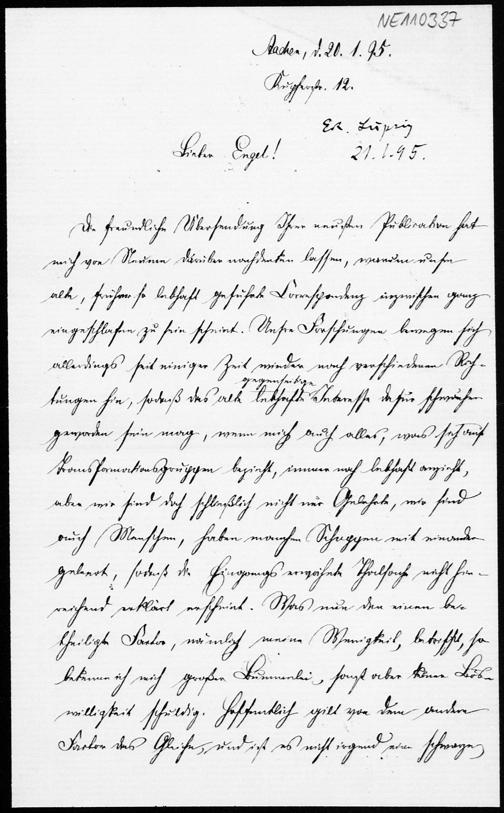 NE110337
Aachen, d. 20. 1. 95.
Kupferstr. 12.
Erh. Leipzig
21.1.95.
Lieber Engel!
Die freundliche Übersendung Ihrer neuesten Publication hat
mich von Neuem darüber nachdenken lassen, warum unsre
alte, früher so lebhaft geführte Correspondenz inzwischen ganz
eingeschlafen zu sein scheint. Unsre Forschungen bewegen sich
allerdings seit einiger Zeit wieder nach verschiedenen Rich-
tungen hin, sodaß das alte lebhafte gegenseitige Interesse dafür schwächer
geworden sein mag, wenn mich auch alles, was sich auf
Transformationsgruppen bezieht, immer noch lebhaft anzieht,
aber wir sind doch schließlich nicht nur Gelehrte, wir sind
auch Menschen, haben manchen Schoppen mit einander
geleert, sodaß die Eingangs erwähnte Thatsache nicht hin-
reichend erklärt erscheint. Was nun den einen be-
theiligten Factor, nämlich meine Wenigkeit, betrifft, so
bekenne ich mich großer Bummelei, sonst aber keiner Bös-
willigkeit schuldig. Hoffentlich gilt von dem andern
Factor das Gleiche, und ist es nicht irgend ein schwarzer